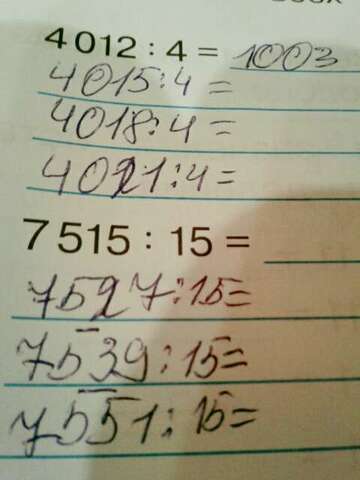 4 012 : 4 = 1003
4015:4=
4018:4=
4021:4=
7 515 : 15 =
7527:15=
7539:15=
7551:15=